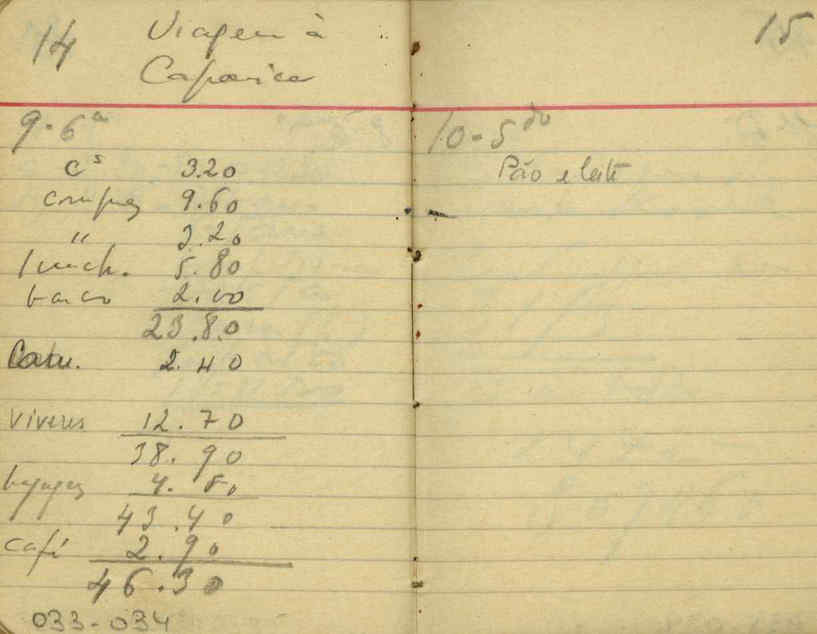 14
Viagem à
Caparica
9-6ª
cˢ 3.20
compras 9.60
" 3.20
lunch. 5.80
barco 2.00
23.80
2.40
viveres 12.70
38.90
4.50
43.40
café 2.90
46.30
033-034
15
10-5ᵈᵒ
Pão e leite